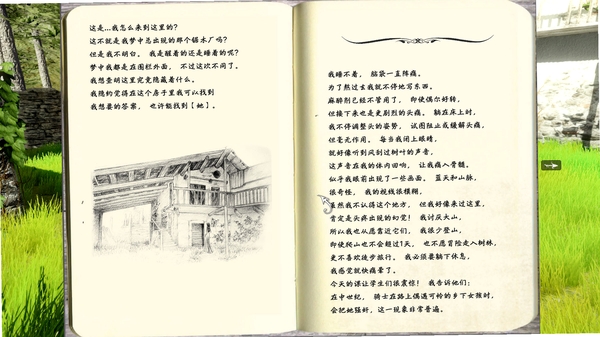 这是...我怎么来到这里的?
这不就是我梦中总出现的那个锯木厂吗?
但是我不明白。 我是醒着的还是睡着的呢?
梦中我都是在围栏外面, 不过这次不同了。
我想查明这里究竟隐藏着什么。
我隐约觉得在这个房子里我可以找到
我想要的答案, 也许能找到【她】。
我睡不着, 脑袋一直阵痛。
为了熬过去我就不停地写东西。
麻醉剂已经不管用了, 即使偶尔好转,
但接下来也是更剧烈的头痛。 躺在床上时,
我不停调整头的姿势, 试图阻止或缓解头痛。
但毫无作用。 每当我闭上眼睛,
就好像听到风刮过树叶的声音,
这声音在我的体内回响, 让我痛入骨髓。
似乎我眼前出现了一些画面。 蓝天和山脉,
很奇怪, 我的视线很模糊,
虽然我不认得这个地方, 但我好像来过这里,
肯定是头疼出现的幻觉! 我讨厌大山,
所以我也从愿靠近它们, 我很少登山,
即使爬山也不会超过1天, 也不愿冒险走入树林,
更不喜欢徒步旅行。 我必须要躺下休息,
我感觉就快痛晕了。
今天的课让学生们很震惊! 我告诉他们:
在中世纪, 骑士在路上偶遇可怜的乡下女孩时,
会把她强奸, 这一现象非常普遍。